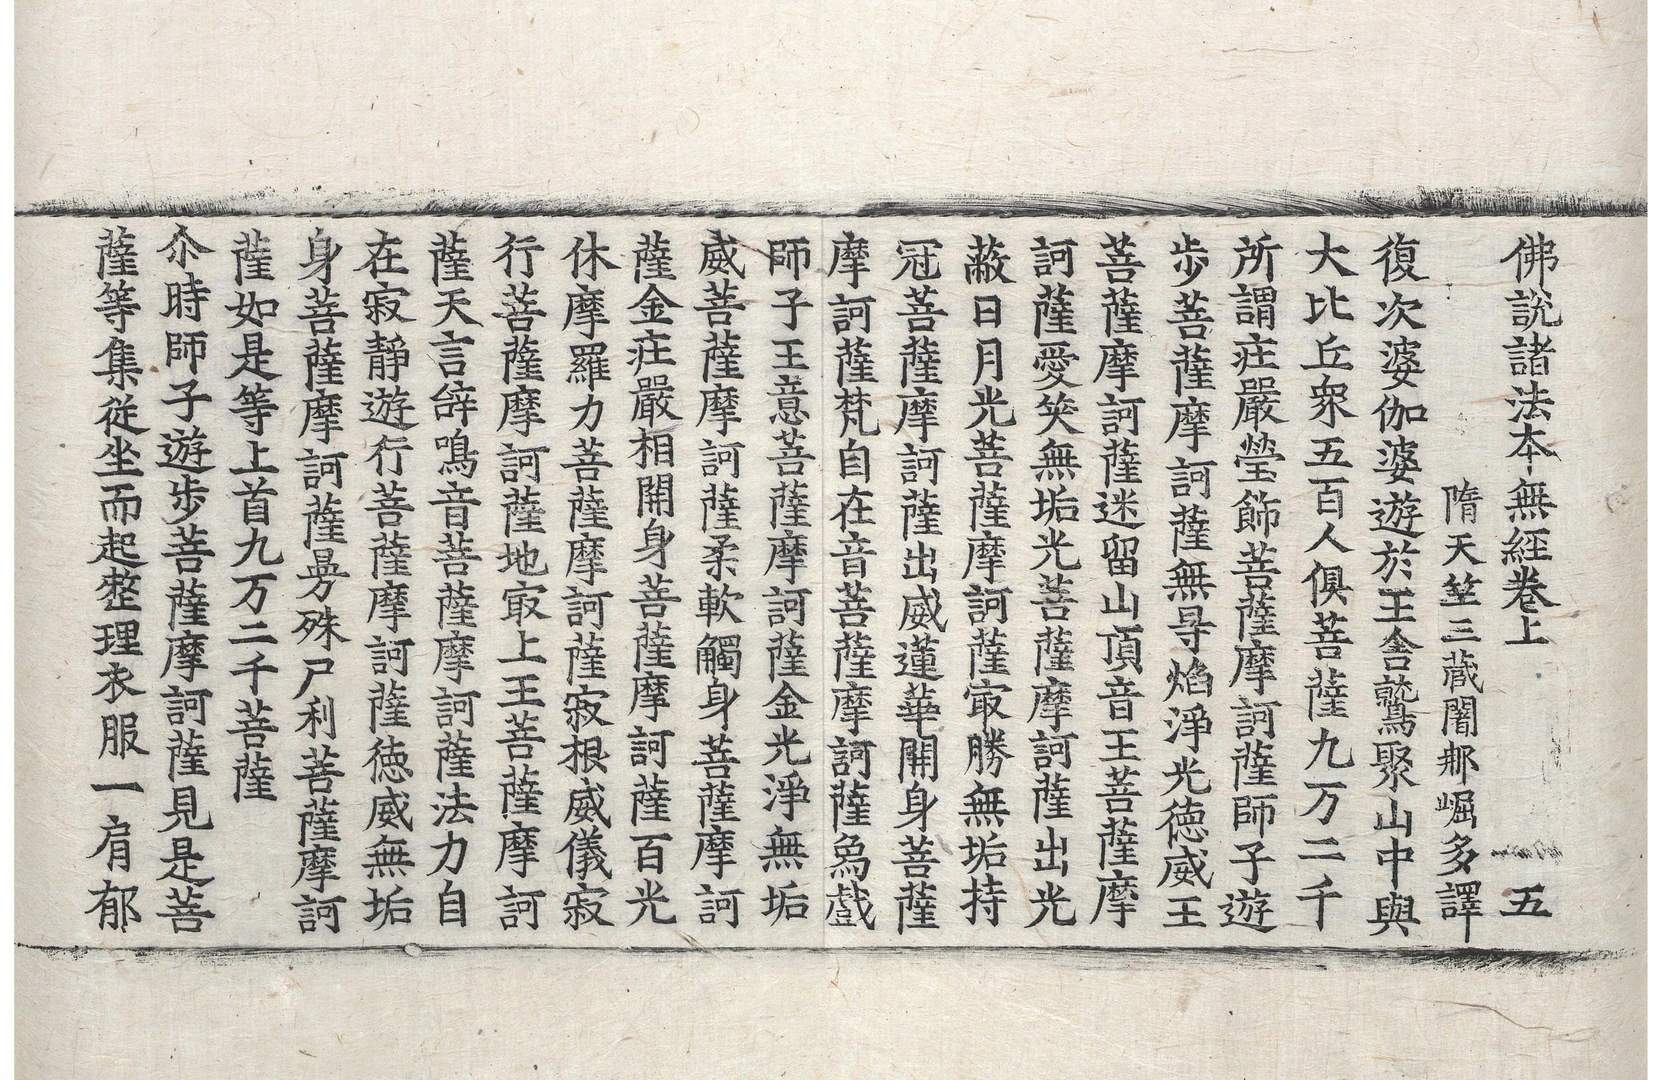 佛說諸法本無經卷上　五
隋天竺三藏闍那崛多譯
復次婆伽婆遊於王舍鷲聚山中與
大比丘衆五百人俱菩薩九万二千
所謂庄嚴瑩飾菩薩摩訶薩師子遊
步菩薩摩訶薩無㝵焰淨光德威王
菩薩摩訶薩迷留山頂音王菩薩摩
訶薩愛笑無垢光菩薩摩訶薩出光
蔽日月光菩薩摩訶薩㝡勝無垢持
冠菩薩摩訶薩出威蓮華開身菩薩
摩訶薩梵自在音菩薩摩訶薩爲戲
師子王意菩薩摩訶薩金光淨無垢
威菩薩摩訶薩柔軟觸身菩薩摩訶
薩金庄嚴相開身菩薩摩訶薩百光
休摩羅力菩薩摩訶薩寂根威儀寂
行菩薩摩訶薩地㝡上王菩薩摩訶
薩天言辝鳴音菩薩摩訶薩法力自
在寂靜遊行菩薩摩訶薩德威無垢
身菩薩摩訶薩曼殊尸利菩薩摩訶
薩如是等上首九万二千菩薩
尒時師子遊步菩薩摩訶薩見是菩
薩等集從坐而起整理衣服一肩郁